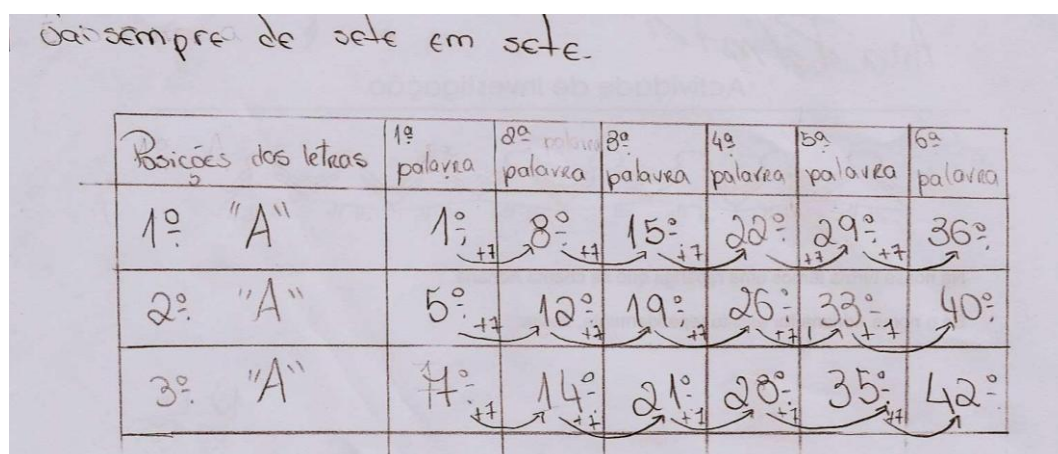 sai sempre de sete em sete.
Posições das letras 1ª palavra 2ª palavra 3ª palavra 4ª palavra 5ª palavra 6ª palavra
1º "A" 1º +7 8º +7 15º +7 22º +7 29º +7 36º
2º "A" 5º +7 12º +7 19º +7 26º +7 33º +7 40º
3º "A" 7º +7 14º +7 21º +7 28º +7 35º +7 42º